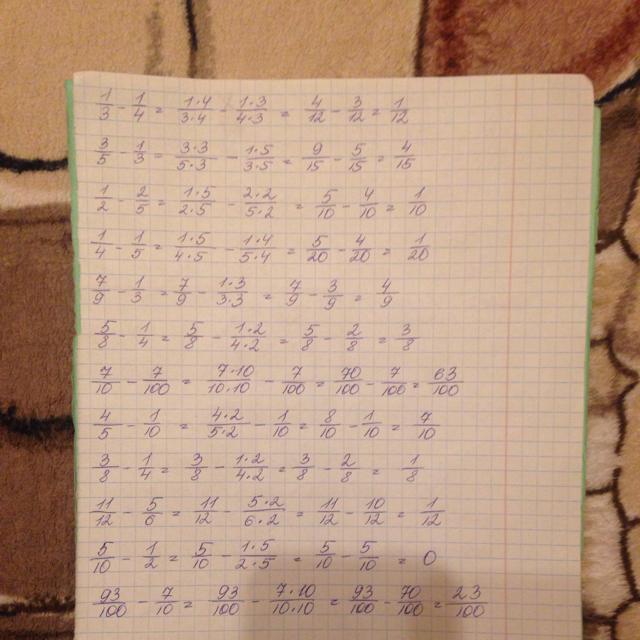 1/3 - 1/4 = 1·4/3·4 - 1·3/4·3 = 4/12 - 3/12 = 1/12
3/5 - 1/3 = 3·3/5·3 - 1·5/3·5 = 9/15 - 5/15 = 4/15
1/2 - 2/5 = 1·5/2·5 - 2·2/5·2 = 5/10 - 4/10 = 1/10
1/4 - 1/5 = 1·5/4·5 - 1·4/5·4 = 5/20 - 4/20 = 1/20
7/9 - 1/3 = 7/9 - 1·3/3·3 = 7/9 - 3/9 = 4/9
5/8 - 1/4 = 5/8 - 1·2/4·2 = 5/8 - 2/8 = 3/8
7/10 - 7/100 = 7·10/10·10 - 7/100 = 70/100 - 7/100 = 63/100
4/5 - 1/10 = 4·2/5·2 - 1/10 = 8/10 - 1/10 = 7/10
3/8 - 1/4 = 3/8 - 1·2/4·2 = 3/8 - 2/8 = 1/8
11/12 - 5/6 = 11/12 - 5·2/6·2 = 11/12 - 10/12 = 1/12
5/10 - 1/2 = 5/10 - 1·5/2·5 = 5/10 - 5/10 = 0
93/100 - 7/10 = 93/100 - 7·10/10·10 = 93/100 - 70/100 = 23/100